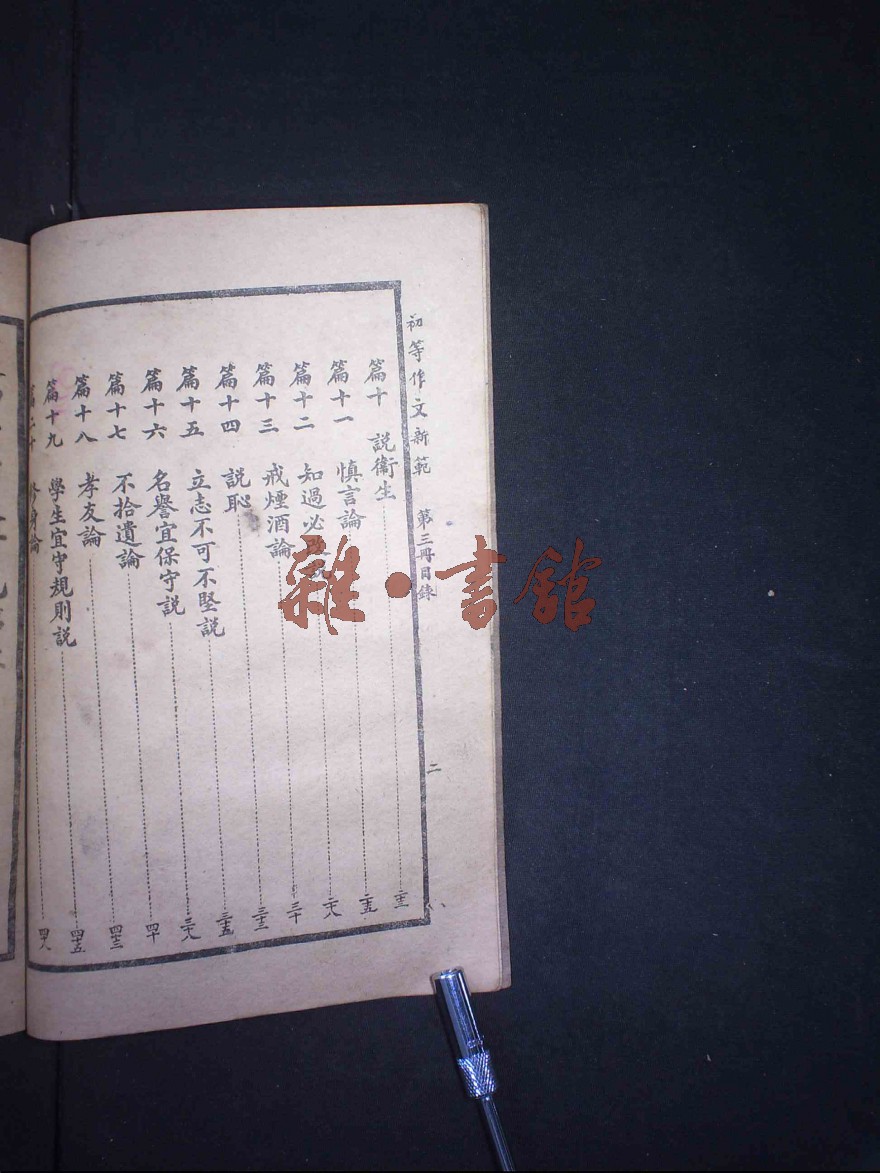 初等作文新範 第三冊目錄 二
篇十 說衞生 二十三
篇十一 慎言論 二十五
篇十二 知過必改說 二十八
篇十三 戒煙酒論 三十
篇十四 說恥 三十三
篇十五 立志不可不堅說 三十五
篇十六 名譽宜保守說 三十八
篇十七 不拾遺論 四十
篇十八 孝友論 四十三
篇十九 學生宜守規則說 四十五
篇二十 修身論 四十八
雜·書館